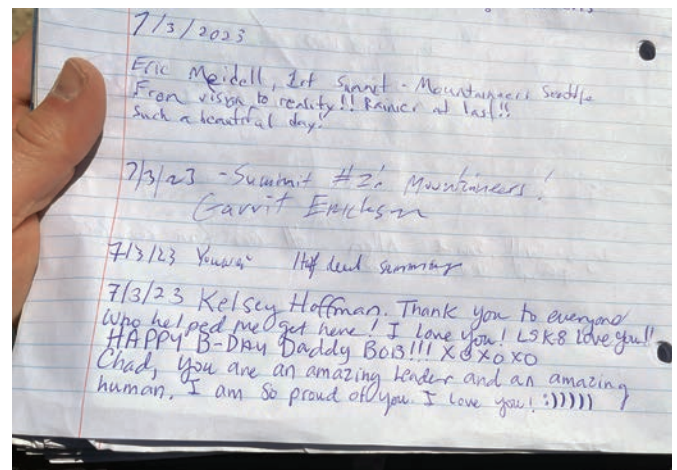 7/3/2023
Eric Meidell, 1st Summit - Mountaineers Seattle
From vision to reality!! Rainier at last!!
Such a beautiful day!
7/3/23 - Summit #2! Mountaineers!
Garrit Erickson
7/3/23
7/3/23 Kelsey Hoffman. Thank you to everyone
who helped me get here! I love you! LSK8 love you!!
HAPPY B-DAY Daddy BOB!!! XOXOXO
Chad, you are an amazing leader and an amazing
human. I am so proud of you. I love you! :)))))